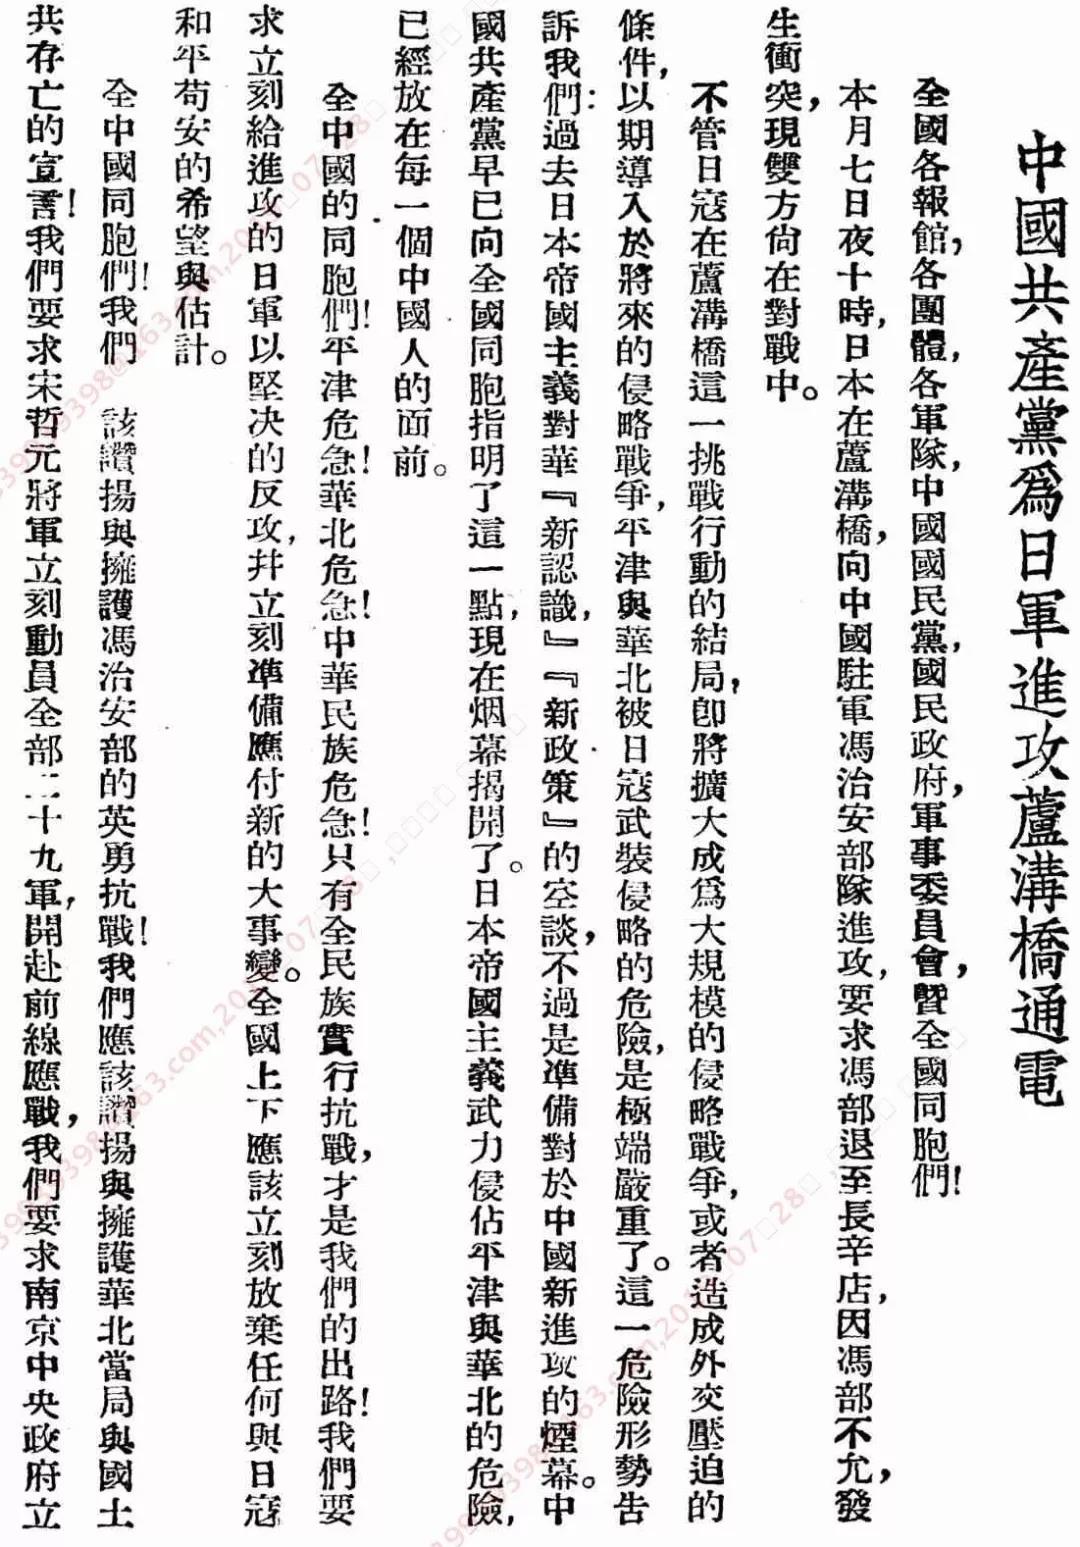 中國共產黨爲日軍進攻蘆溝橋通電
全國各報館，各團體，各軍隊，中國國民黨，國民政府，軍事委員會，暨全國同胞們！
本月七日夜十時，日本在蘆溝橋，向中國駐軍馮治安部隊進攻，要求馮部退至長辛店，因馮部不允，發
生衝突，現雙方尙在對戰中。
不管日寇在蘆溝橋這一挑戰行動的結局，卽將擴大成爲大規模的侵略戰爭，或者造成外交壓迫的
條件，以期導入於將來的侵略戰爭，平津與華北被日寇武裝侵略的危險，是極端嚴重了。這一危險形勢告
訴我們：過去日本帝國主義對華『新認識，』『新政策』的空談，不過是準備對於中國新進攻的煙幕。中
國共產黨早已向全國同胞指明了這一點，現在烟幕揭開了。日本帝國主義武力侵佔平津與華北的危險，
已經放在每一個中國人的面前。
全中國的同胞們！平津危急！華北危急！中華民族危急！只有全民族實行抗戰，才是我們的出路！我們要
求立刻給進攻的日軍以堅决的反攻，幷立刻準備應付新的大事變。全國上下應該立刻放棄任何與日寇
和平苟安的希望與估計。
全中國同胞們！我們 該讚揚與擁護馮治安部的英勇抗戰！我們應該讚揚與擁護華北當局與國土
共存亡的宣言！我們要求宋哲元將軍立刻動員全部二十九軍，開赴前線應戰，我們要求南京中央政府立